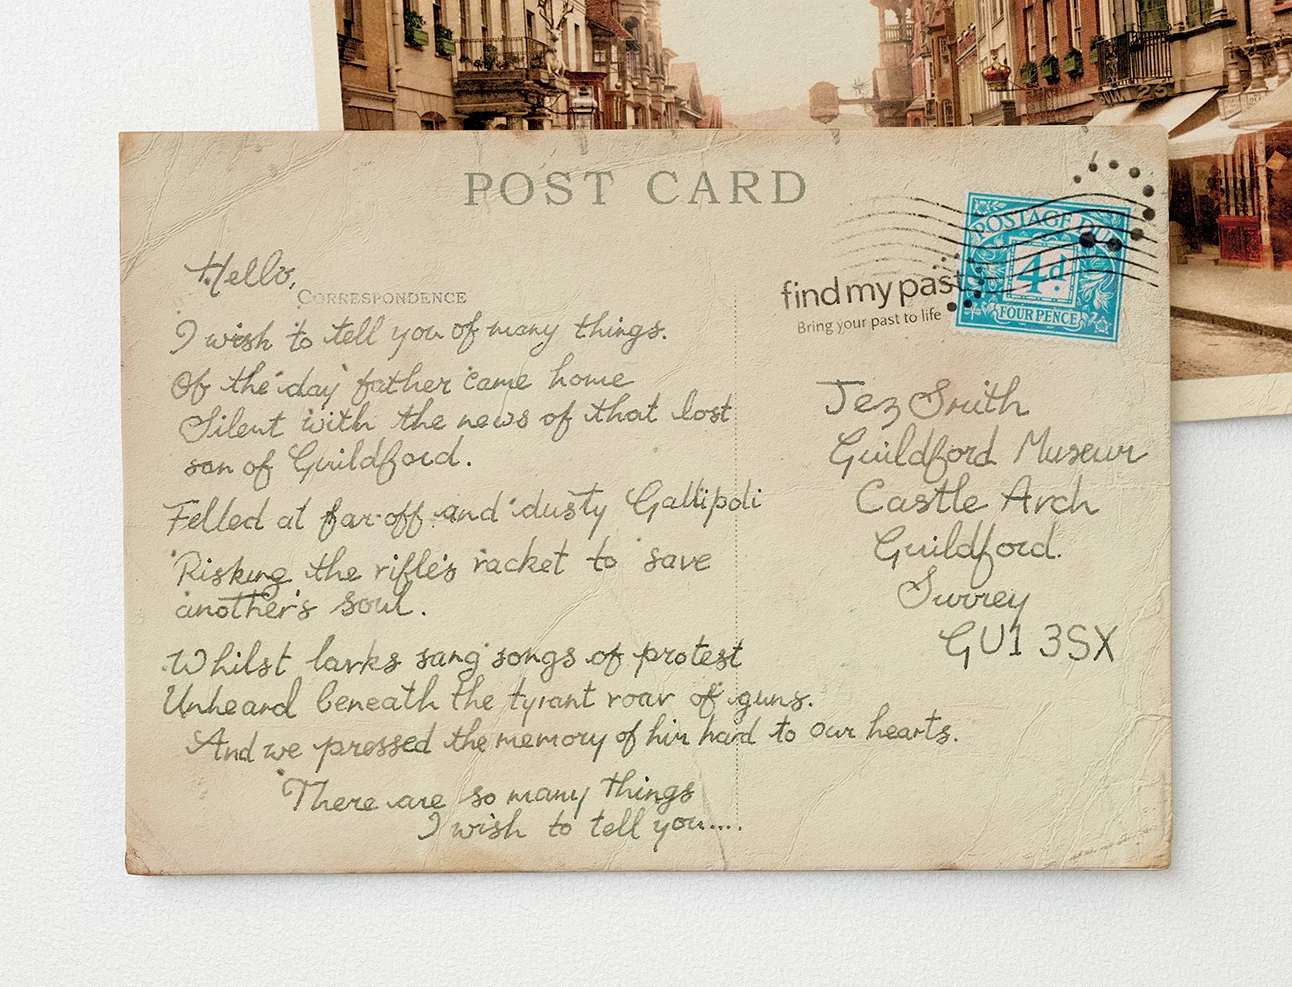 POST CARD
Hello,
CORRESPONDENCE
I wish to tell you of many things.
Of the day father came home
Silent with the news of that lost
son of Guildford.
Felled at far-off and dusty Gallipoli
Risking the rifle's racket to save
another's soul.
Whilst larks sang songs of protest
Unheard beneath the tyrant roar of guns.
And we pressed the memory of him hard to our hearts.
There are so many things
I wish to tell you....
POSTAGE DUE
4d.
FOUR PENCE
find my past
Bring your past to life
Jez Smith
Guildford Museum
Castle Arch
Guildford.
Surrey
GU1 3SX